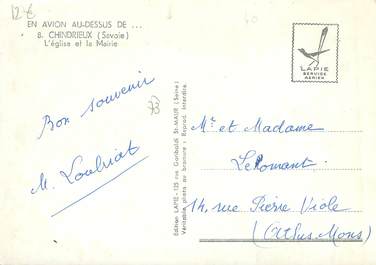 12 €
EN AVION AU-DESSUS DE ...
8. CHINDRIEUX (Savoie)
L'église et la Mairie
Bon souvenir
M.
73
Edition LAPIE - 125 rue Garibaldi St-MAUR (Seine)
Véritable photo au bromure : Reprod. Interdite
LAPIE
SERVICE
AERIEN
Mr et Madame
LeRomant
14, rue Pierre Viole
(Athis-Mons)